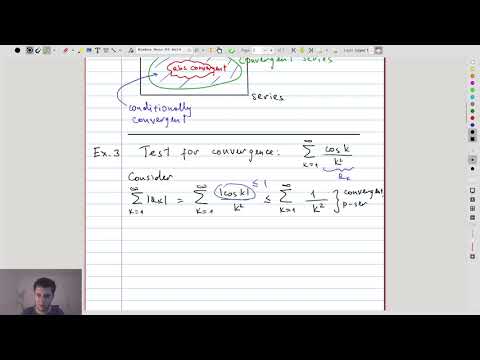 convergent series
abs convergent
series
conditionally
convergent
Ex.3 Test for convergence: ∑_{k=1}^{∞} cos k / k²
a_k
Consider
≤ 1
∑_{k=1}^{∞} |a_k| = ∑_{k=1}^{∞} |cos k| / k² ≤ ∑_{k=1}^{∞} 1 / k² } convergent
p-ser